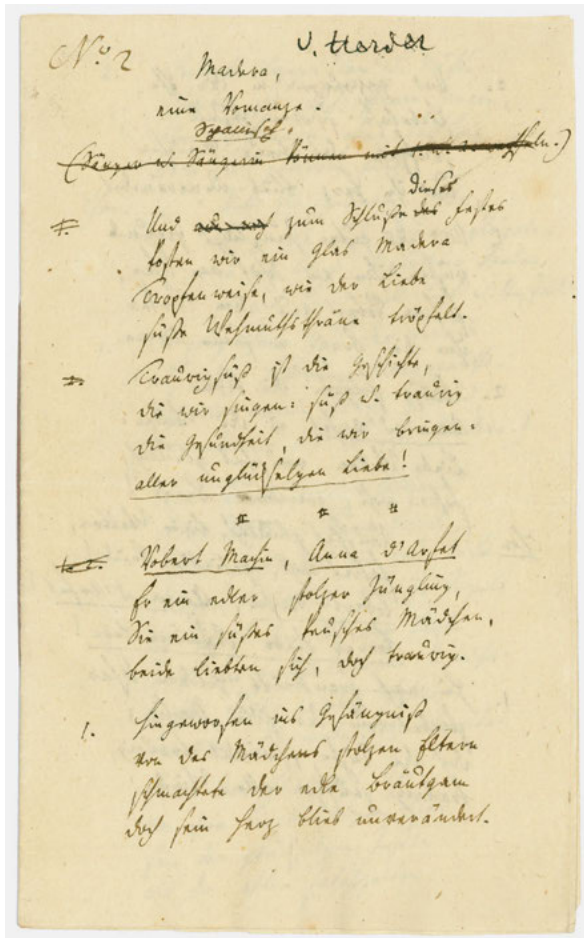 No 2
v. Herder
Madera,
eine Romanze.
Spanisch.
(Sänger u. Sängerin können mit
Und zum Schluße des dieses Festes
kosten wir ein Glas Madera
Tropfenweise, wie der Liebe
süße Wehmuthsthräne tröpfelt.
Traurigsüß ist die Geschichte,
die wir singen: süß u. traurig
die Gesundheit, die wir bringen:
aller unglückselgen Liebe!
Robert Machin, Anna d'Arfet
Er ein edler stolzer Jüngling,
Sie ein süßes keusches Mädchen,
beide liebten sich, doch traurig.
1. Hingeworfen ins Gefängniß
von des Mädchens stolzen Eltern
schmachtete der edle Bräutgam
doch sein Herz blieb unverändert.